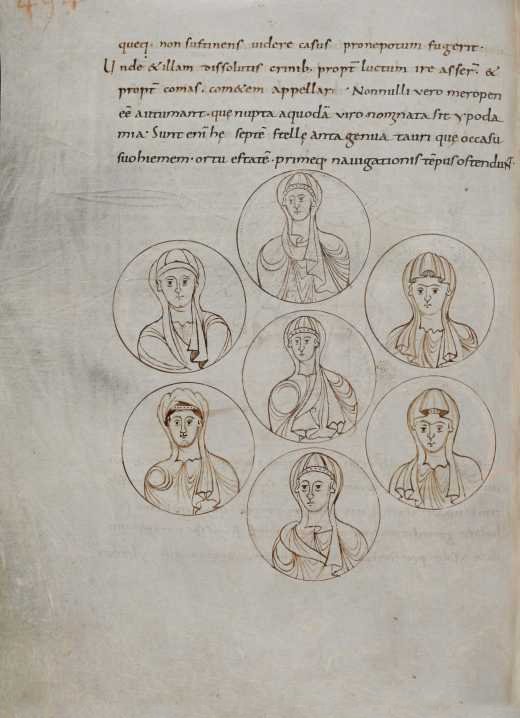 queq; non sustinens uidere casus pronepotum fugerit.
Unde & illam dissolutis crinib; propt̄ luctum ire asser̄ &
propt̄ comas. com&em appellari. Nonnulli vero meropen
eē autumant. quę nupta aquodā viro nominata sit ypoda
mia. Sunt enī hę septē stellę anta genua tauri quę occasu
suo hiemem. ortu estatē. primeq; navigationis tēpus ostendunt.